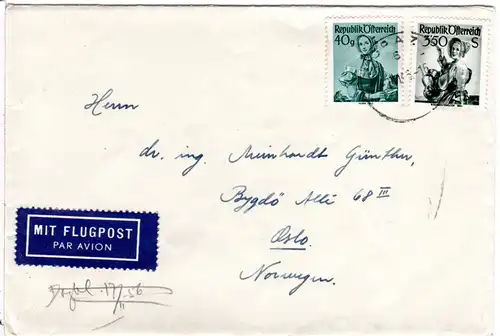 Republik Österreich
40g
Republik Österreich
3'50 S
Herrn
dr. ing. Meinhardt Günther,
Bygdö Allé 68 III
Oslo.
Norwegen.
MIT FLUGPOST
PAR AVION